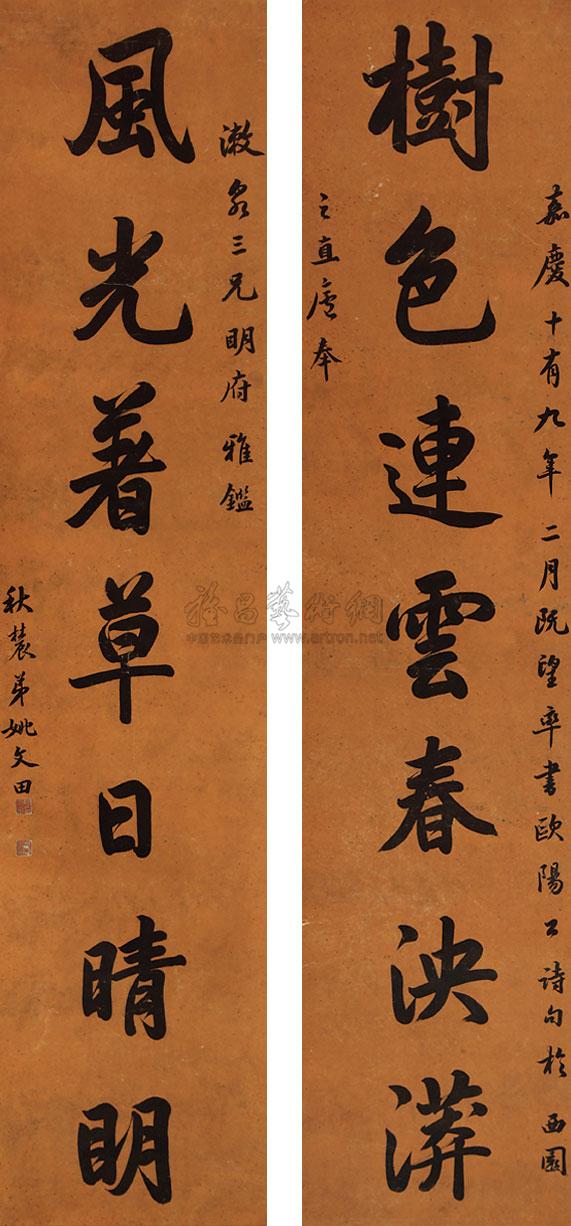 嘉慶十有九年二月既望率書歐陽公詩句於西園
樹色連雲春泱漭
之直廬奉
漱泉三兄明府雅鑑
風光著草日晴明
秋農弟姚文田
雅昌藝術網
中国艺术品门户 www.artron.net